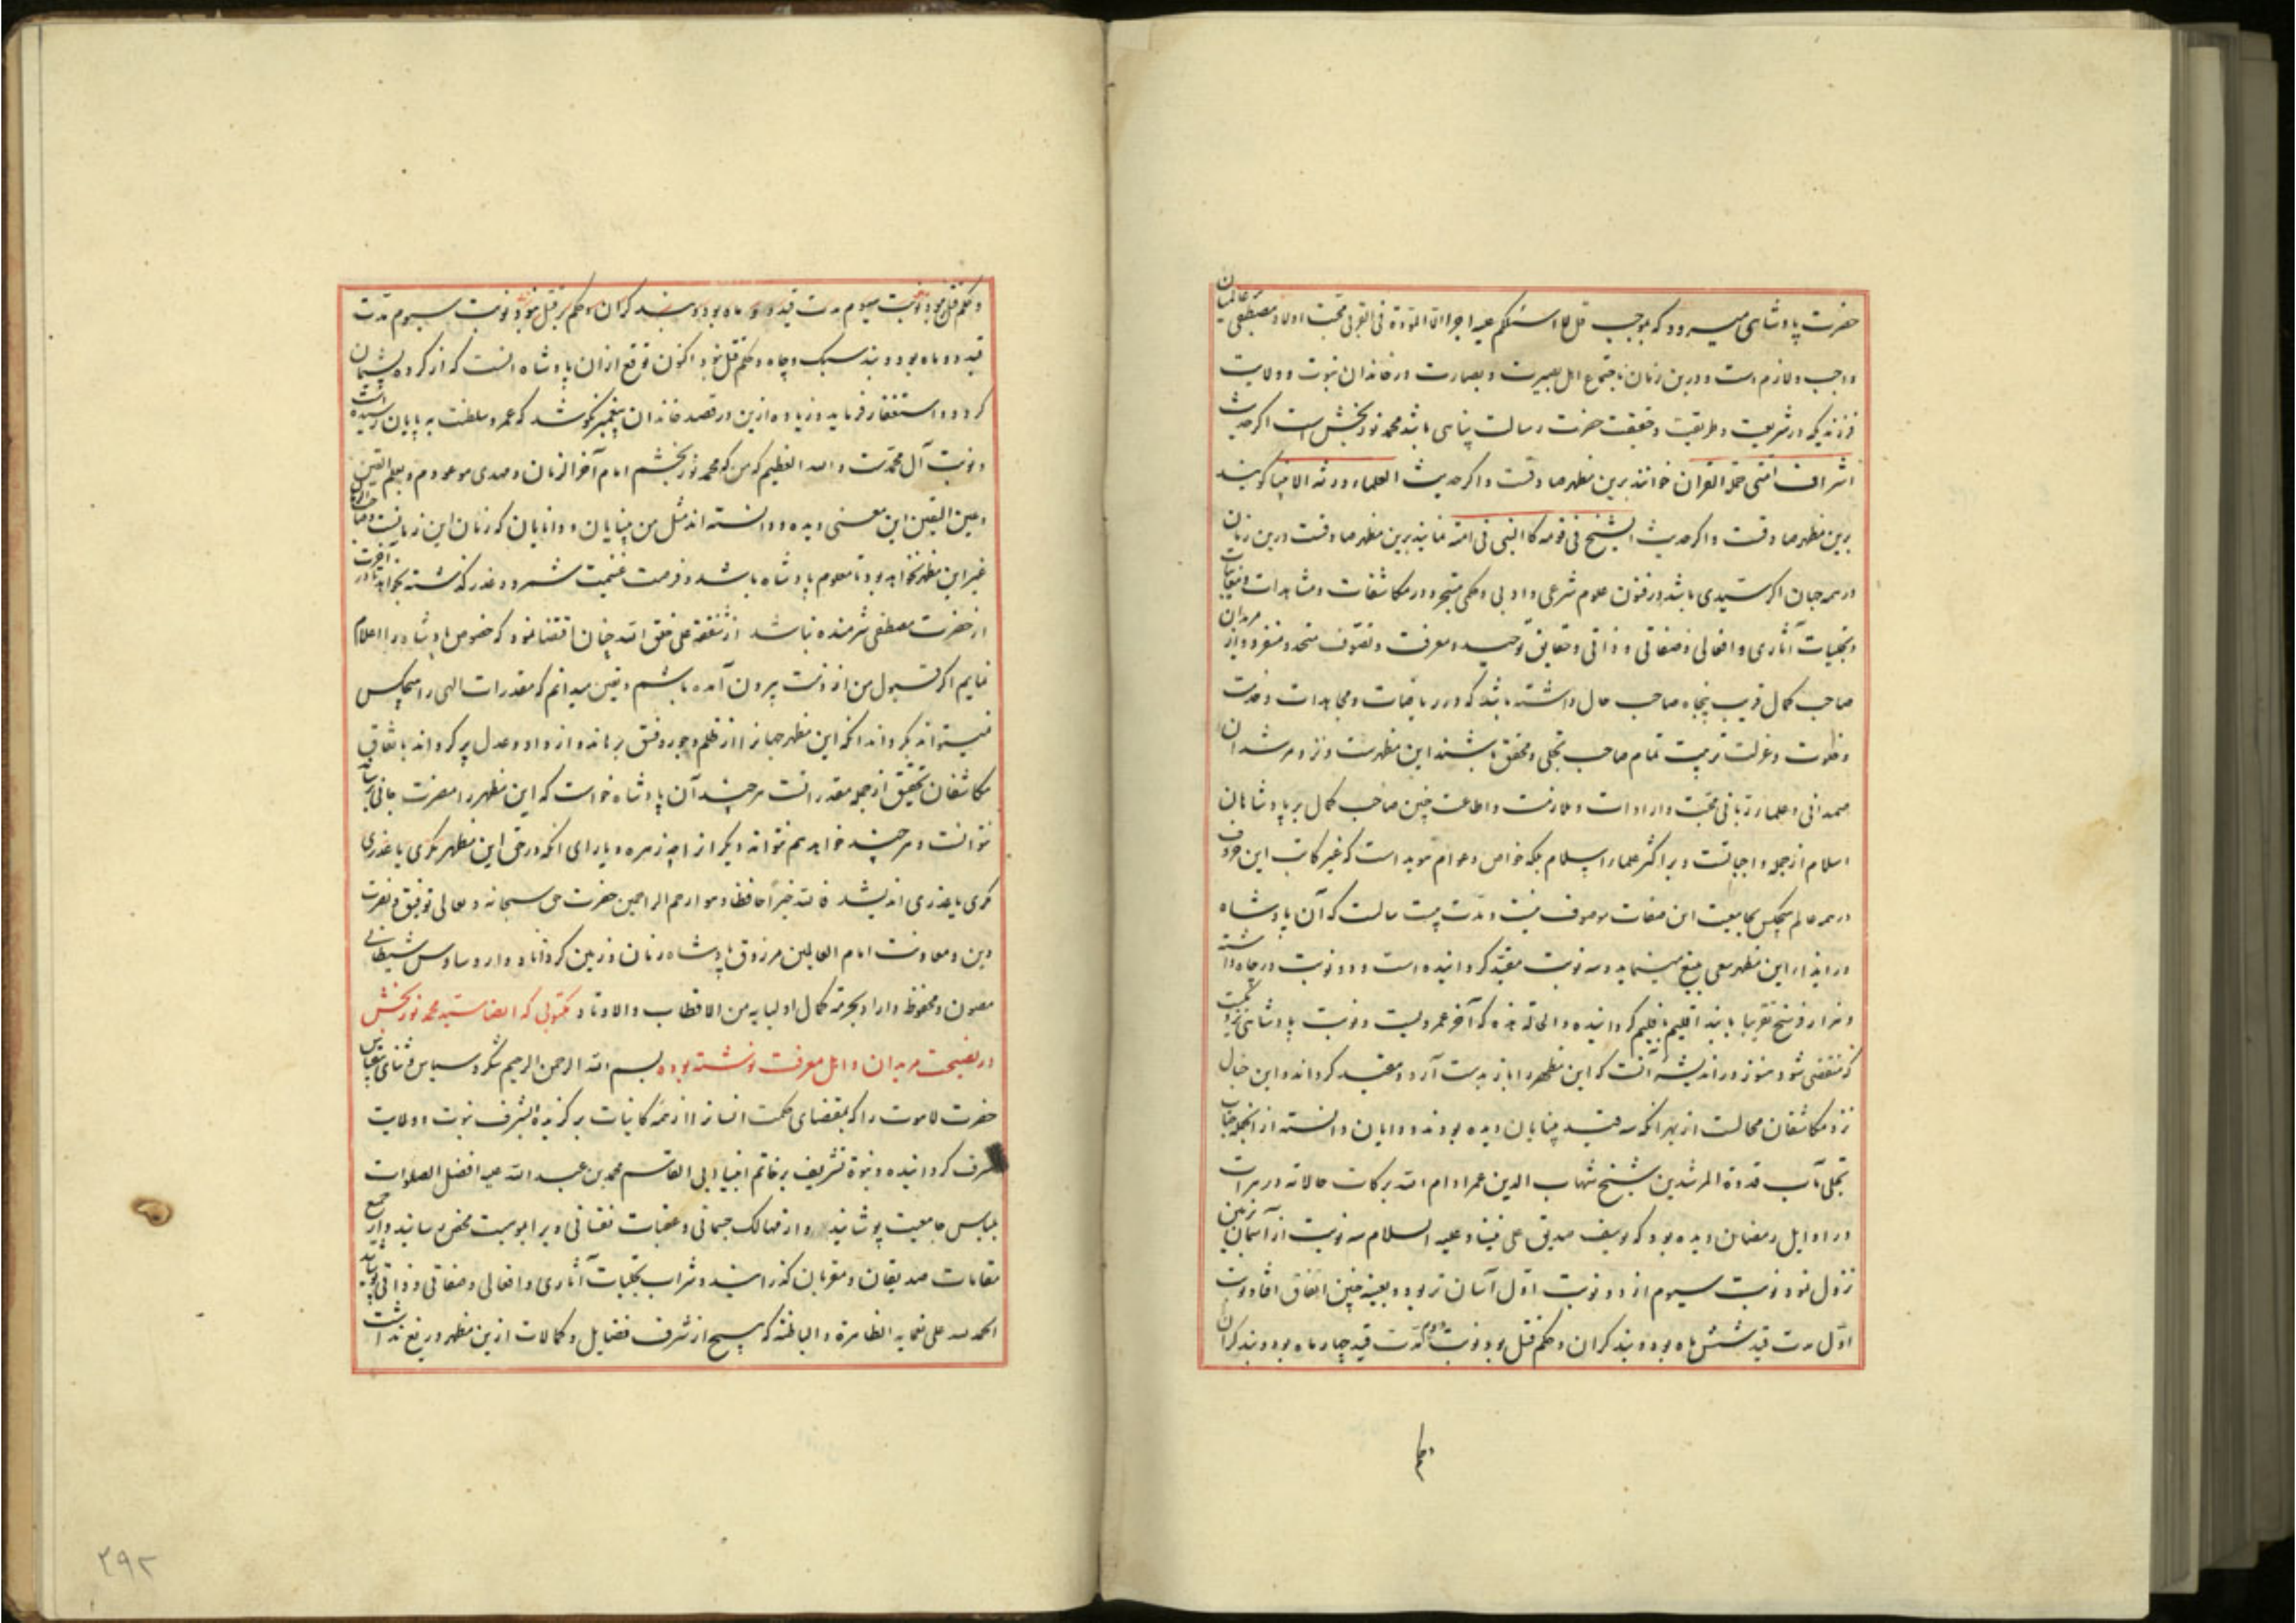 حضرت پادشاهی میرود که بموجب قل لا اسئلکم علیه اجرا الا المودة فی القربی محبت اولاد مصطفی عالمیان
واجب و لازم است و درین زمان باجتماع اهل بصیرت و بصارت در خاندان نبوت و ولایت
فرزندیکه در شریعت و طریقت و حقیقت حضرت رسالت پناهی باشد محمد نوربخش است اگر حدیث
اشراف امتی حملة القرآن خوانند برین مظهر صادقست و اگر حدیث العلماء ورثة الانبیا گویند
برین مظهر صادقست و اگر حدیث الشیخ فی قومه کالنبی فی امته نمایند برین مظهر صادقست درین زمان
در همه جهان اگر سیدی باشد در فنون علوم شرعی و ادبی و حکمی متبحر و در مکاشفات و مشاهدات و معاینات
و تجلیات آثاری و افعالی و صفاتی و ذاتی و حقایق توحید و معرفت و تصوف متحد و متفرد و از مریدان
صاحب کمال قریب پنجاه صاحب حال داشته باشد که در ریاضات و مجاهدات و خدمت
و خلوت و عزلت تربیت تمام صاحب تجلی و محقق باشند این مظهرست و نزد مرشدان
صمدانی و علماء ربانی محبت و ارادات و ملازمت و اطاعت چنین صاحب کمال بر پادشاهان
اسلام از جمله واجباتست و بر اکثر علماء اسلام بلکه خواص و عوام موید است که غیر کاتب این حروف
در همه عالم هیچکس بجامعیت این صفات موصوف نیست و مدت بیست سالست که آن پادشاه
در ایذاء این مظهر سعی بلیغ مینماید و سه نوبت مقید گردانیده است و دو نوبت در چاه داشته
و هزار فرسخ تقریبا با بند اقلیم باقلیم گردانیده و الحالة هذه که آخر عمرست و نوبت پادشاهی نزدیکست
که منقضی شود هنوز در اندیشه آنست که این مظهر را باز بدست آرد و مقید گرداند و این خیال
نزد مکاشفان محالست از بهر آنکه سه قید بینایان دیده بودند و دانایان دانسته از انجمله جناب
تجلی مآب قدوة المرشدین شیخ شهاب الدین عمر ادام الله برکات حالاته در هرات
در اوایل رمضان دیده بود که یوسف صدیق علی نبینا و علیه السلام سه نوبت از آسمان بزمین
نزول نمود نوبت سیوم از دو نوبت اول آسان تر بود و بعینه چنین اتفاق افتاد نوبت
اول مدت قید شش ماه بود و بند گران و حکم قتل بود و نوبت دوم مدت قید چهار ماه بود و بند گران
و حکم قتل بود و نوبت سیوم مدت قید دو ماه بود و بند گران و حکم بر قتل نبود و نوبت سیوم مدت
قید دو ماه بود و بند سبک و چاه و حکم قتل نبود اکنون توقع از آن پادشاه آنست که از کرده پشیمان
گردد و استغفار فرماید و زیاده ازین در قصد خاندان پیغمبر نکوشد که عمر و سلطنت به پایان رسیده است
و نوبت آل محمدست و الله العظیم که من که محمد نوربخشم امام آخر الزمان و مهدی موعودم و بعلم الیقین
و عین الیقین این معنی دیده و دانسته اند مثل من بینایان و دانایان که زمان این زمانست و صاحب الزمان
غیر این مظهر نخواهد بود تا معلوم پادشاه باشد و فرصت غنیمت شمرد و عذر گذشته بخواهد تا در آخرت
از حضرت مصطفی شرمنده نباشد از شفقة علی خلق الله چنان اقتضا نمود که خصوص پادشاه را اعلام
نمایم اگر قبول من از دست بیرون آمده باشم و یقین میدانم که مقدرات الهی را هیچکس
نمیتواند بگرداند آنکه این مظهر جهانرا از ظلم و جور و فسق برهاند و از داد و عدل پر گرداند باتفاق
مکاشفان تحقیق از جمله مقدراتست هرچند آن پادشاه خواست که این مظهر را مضرت جانی رساند
نتوانست و هرچند خواهد هم نتواند دیگرانرا چه زهره و یارای آنکه در حق این مظهر مکری یا غدری
مکری یا غدری اندیشد فالله خیر حافظا و هو ارحم الراحمین حضرت حق سبحانه و تعالی توفیق و نصرت
دین و معاونت امام العالمین مرزوق پادشاه زمان و زمین گرداناد و از وساوس شیطانی
مصون و محفوظ دارد بحرمة کمال اولیایه من الاقطاب و الاوتاد مکتوبی که ایضا سید محمد نوربخش
در نصیحت مریدان و اهل معرفت نوشته بوده بسم الله الرحمن الرحیم شکر و سپاس و ثنای بیقیاس
حضرت لاهوت را که بمقتضای حکمت انسانرا از همه کاینات برگزیده بشرف نبوت و ولایت
مشرف گردانیده و نبوة تشریف بر خاتم انبیا ابی القاسم محمد بن عبد الله علیه افضل الصلوات
بلباس جامعیت پوشانید و از مهالک جسمانی و عقبات نفسانی ویرا بموهبت محض رسانید و از جمیع
مقامات صدیقان و مقربان گذرانید و شراب تجلیات آثاری و افعالی و صفاتی و ذاتی نوشانید
الحمد لله علی نعمایه الظاهرة و الباطنة که هیچ از شرف فضایل و کمالات ازین مظهر دریغ نداشت
۲۹۲